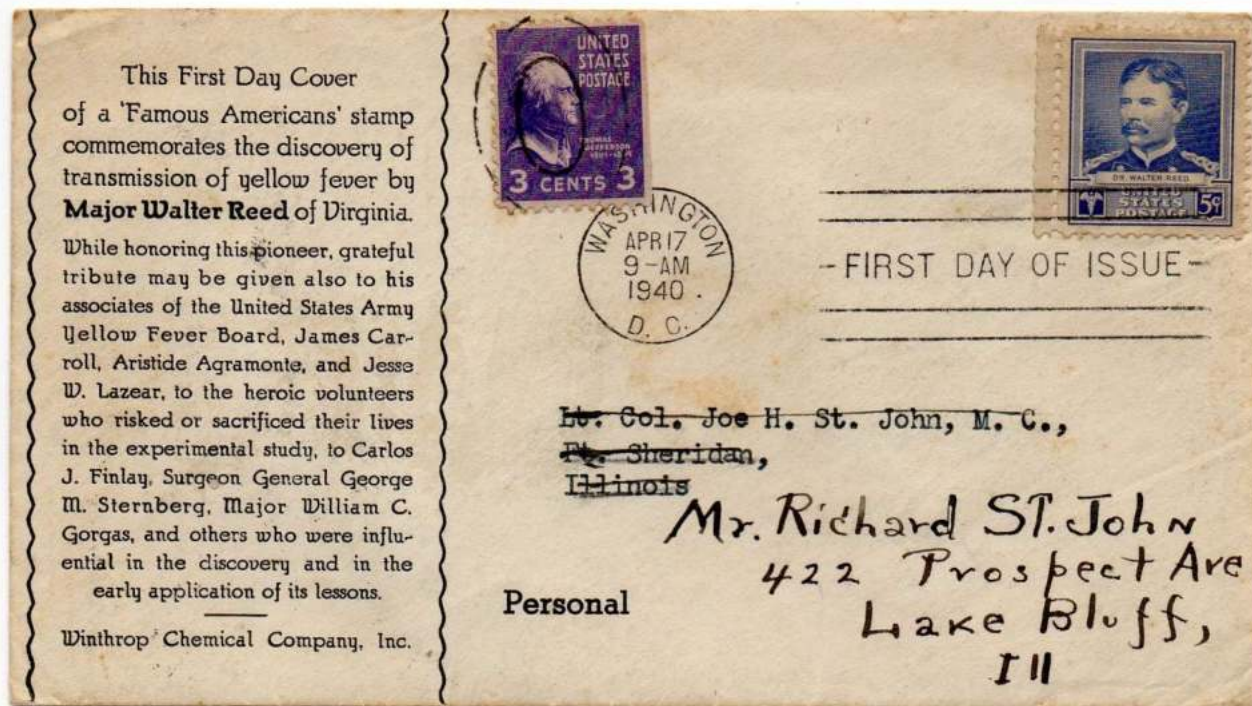 This First Day Cover
of a 'Famous Americans' stamp
commemorates the discovery of
transmission of yellow fever by
Major Walter Reed of Virginia.
While honoring this pioneer, grateful
tribute may be given also to his
associates of the United States Army
Yellow Fever Board, James Car-
roll, Aristide Agramonte, and Jesse
W. Lazear, to the heroic volunteers
who risked or sacrificed their lives
in the experimental study, to Carlos
J. Finlay, Surgeon General George
M. Sternberg, Major William C.
Gorgas, and others who were influ-
ential in the discovery and in the
early application of its lessons.
Winthrop Chemical Company, Inc.
UNITED
STATES
POSTAGE
THOMAS
JEFFERSON
3 CENTS 3
WASHINGTON
APR 17
9-AM
1940
D. C.
FIRST DAY OF ISSUE
DR. WALTER REED
UNITED
STATES
POSTAGE
5¢
Lt. Col. Joe H. St. John, M. C.,
Ft. Sheridan,
Illinois
Mr. Richard ST. John
422 Prospect Ave
Lake Bluff,
Ill
Personal